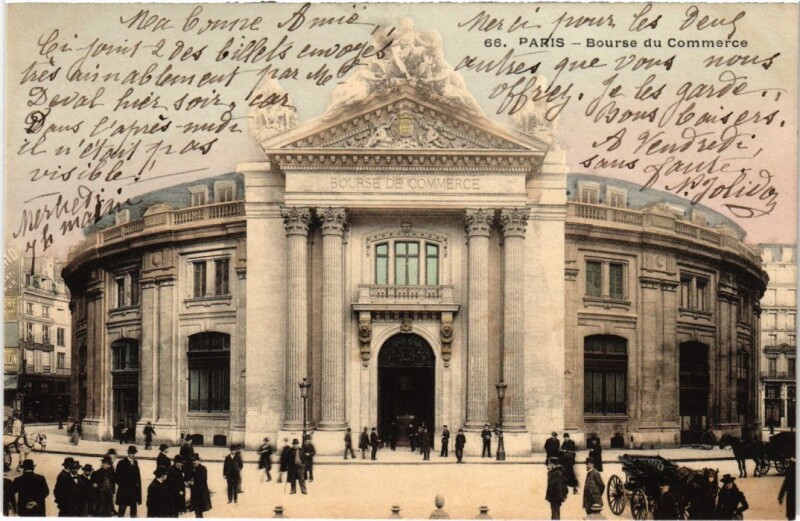 Ma bonne Amie,
Ci joint 2 des billets envoyés
très aimablement par Mr
Deval hier soir, car
Dans l'après midi
il n'était pas
visible!!
Mercredi
7h matin
Merci pour les Deux
66. PARIS – Bourse du Commerce
autres que vous nous
offrez. Je les garde..
Bons baisers.
A Vendredi,
sans faute.
BOURSE DE COMMERCE